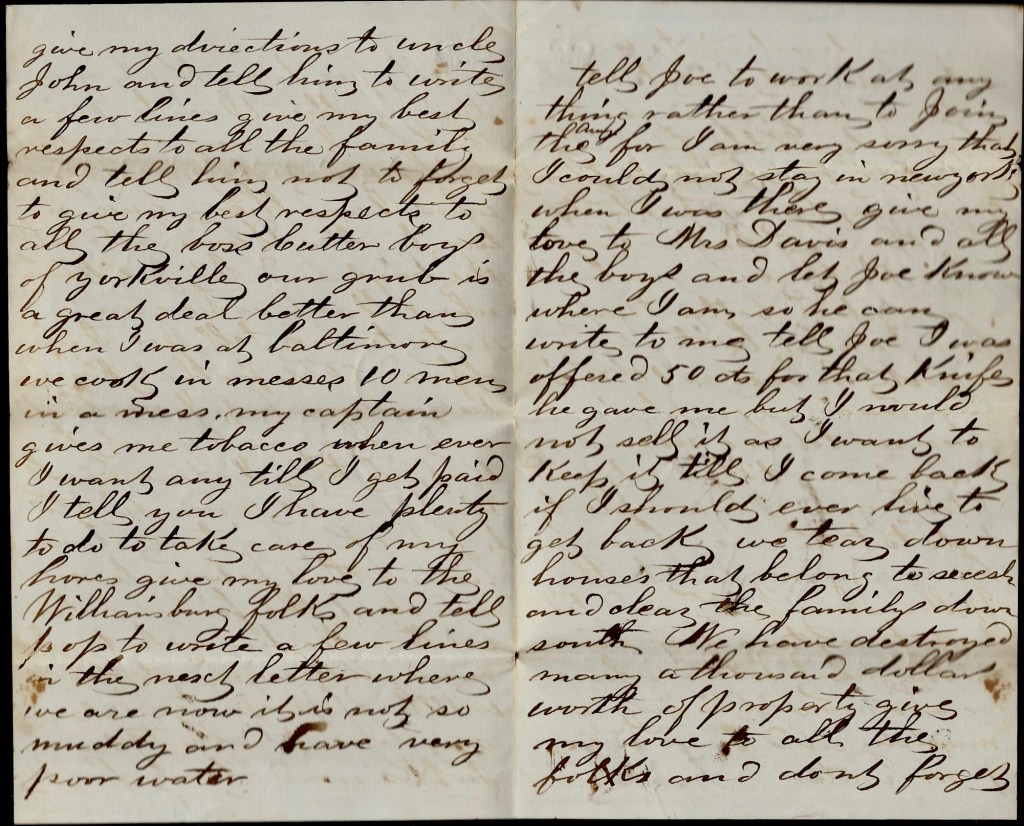 give my dirictions to uncle
John and tell him to write
a few lines give my best
respects to all the family
and tell him not to forget
to give my best respects to
all the boss butter boys
of yorkville our grub is
a great deal better than
when I was at baltimore
we cook in messes 10 men
in a mess. my captain
gives me tobacco when ever
I want any till I get paid
I tell you I have plenty
to do to take care of my
hores give my love to the
Williamsburg folks and tell
pop to write a few lines
in the next letter where
we are now it is not so
muddy and have very
poor water
tell Joe to work at any
thing rather than to Join
the army for I am very sorry that
I could not stay in newyork
when I was there give my
love to Mrs Davis and all
the boys and let Joe Know
where I am so he can
write to me tell Joe I was
offered 50 cts for that Knife
he gave me but I would
not sell it as I want to
Keep it till I come back
if I should ever live to
get back we tear down
houses that belong to secesh
and clear the familys down
south We have destroyed
many a thousand dollar
worth of property give
my love to all the
folks and dont forget